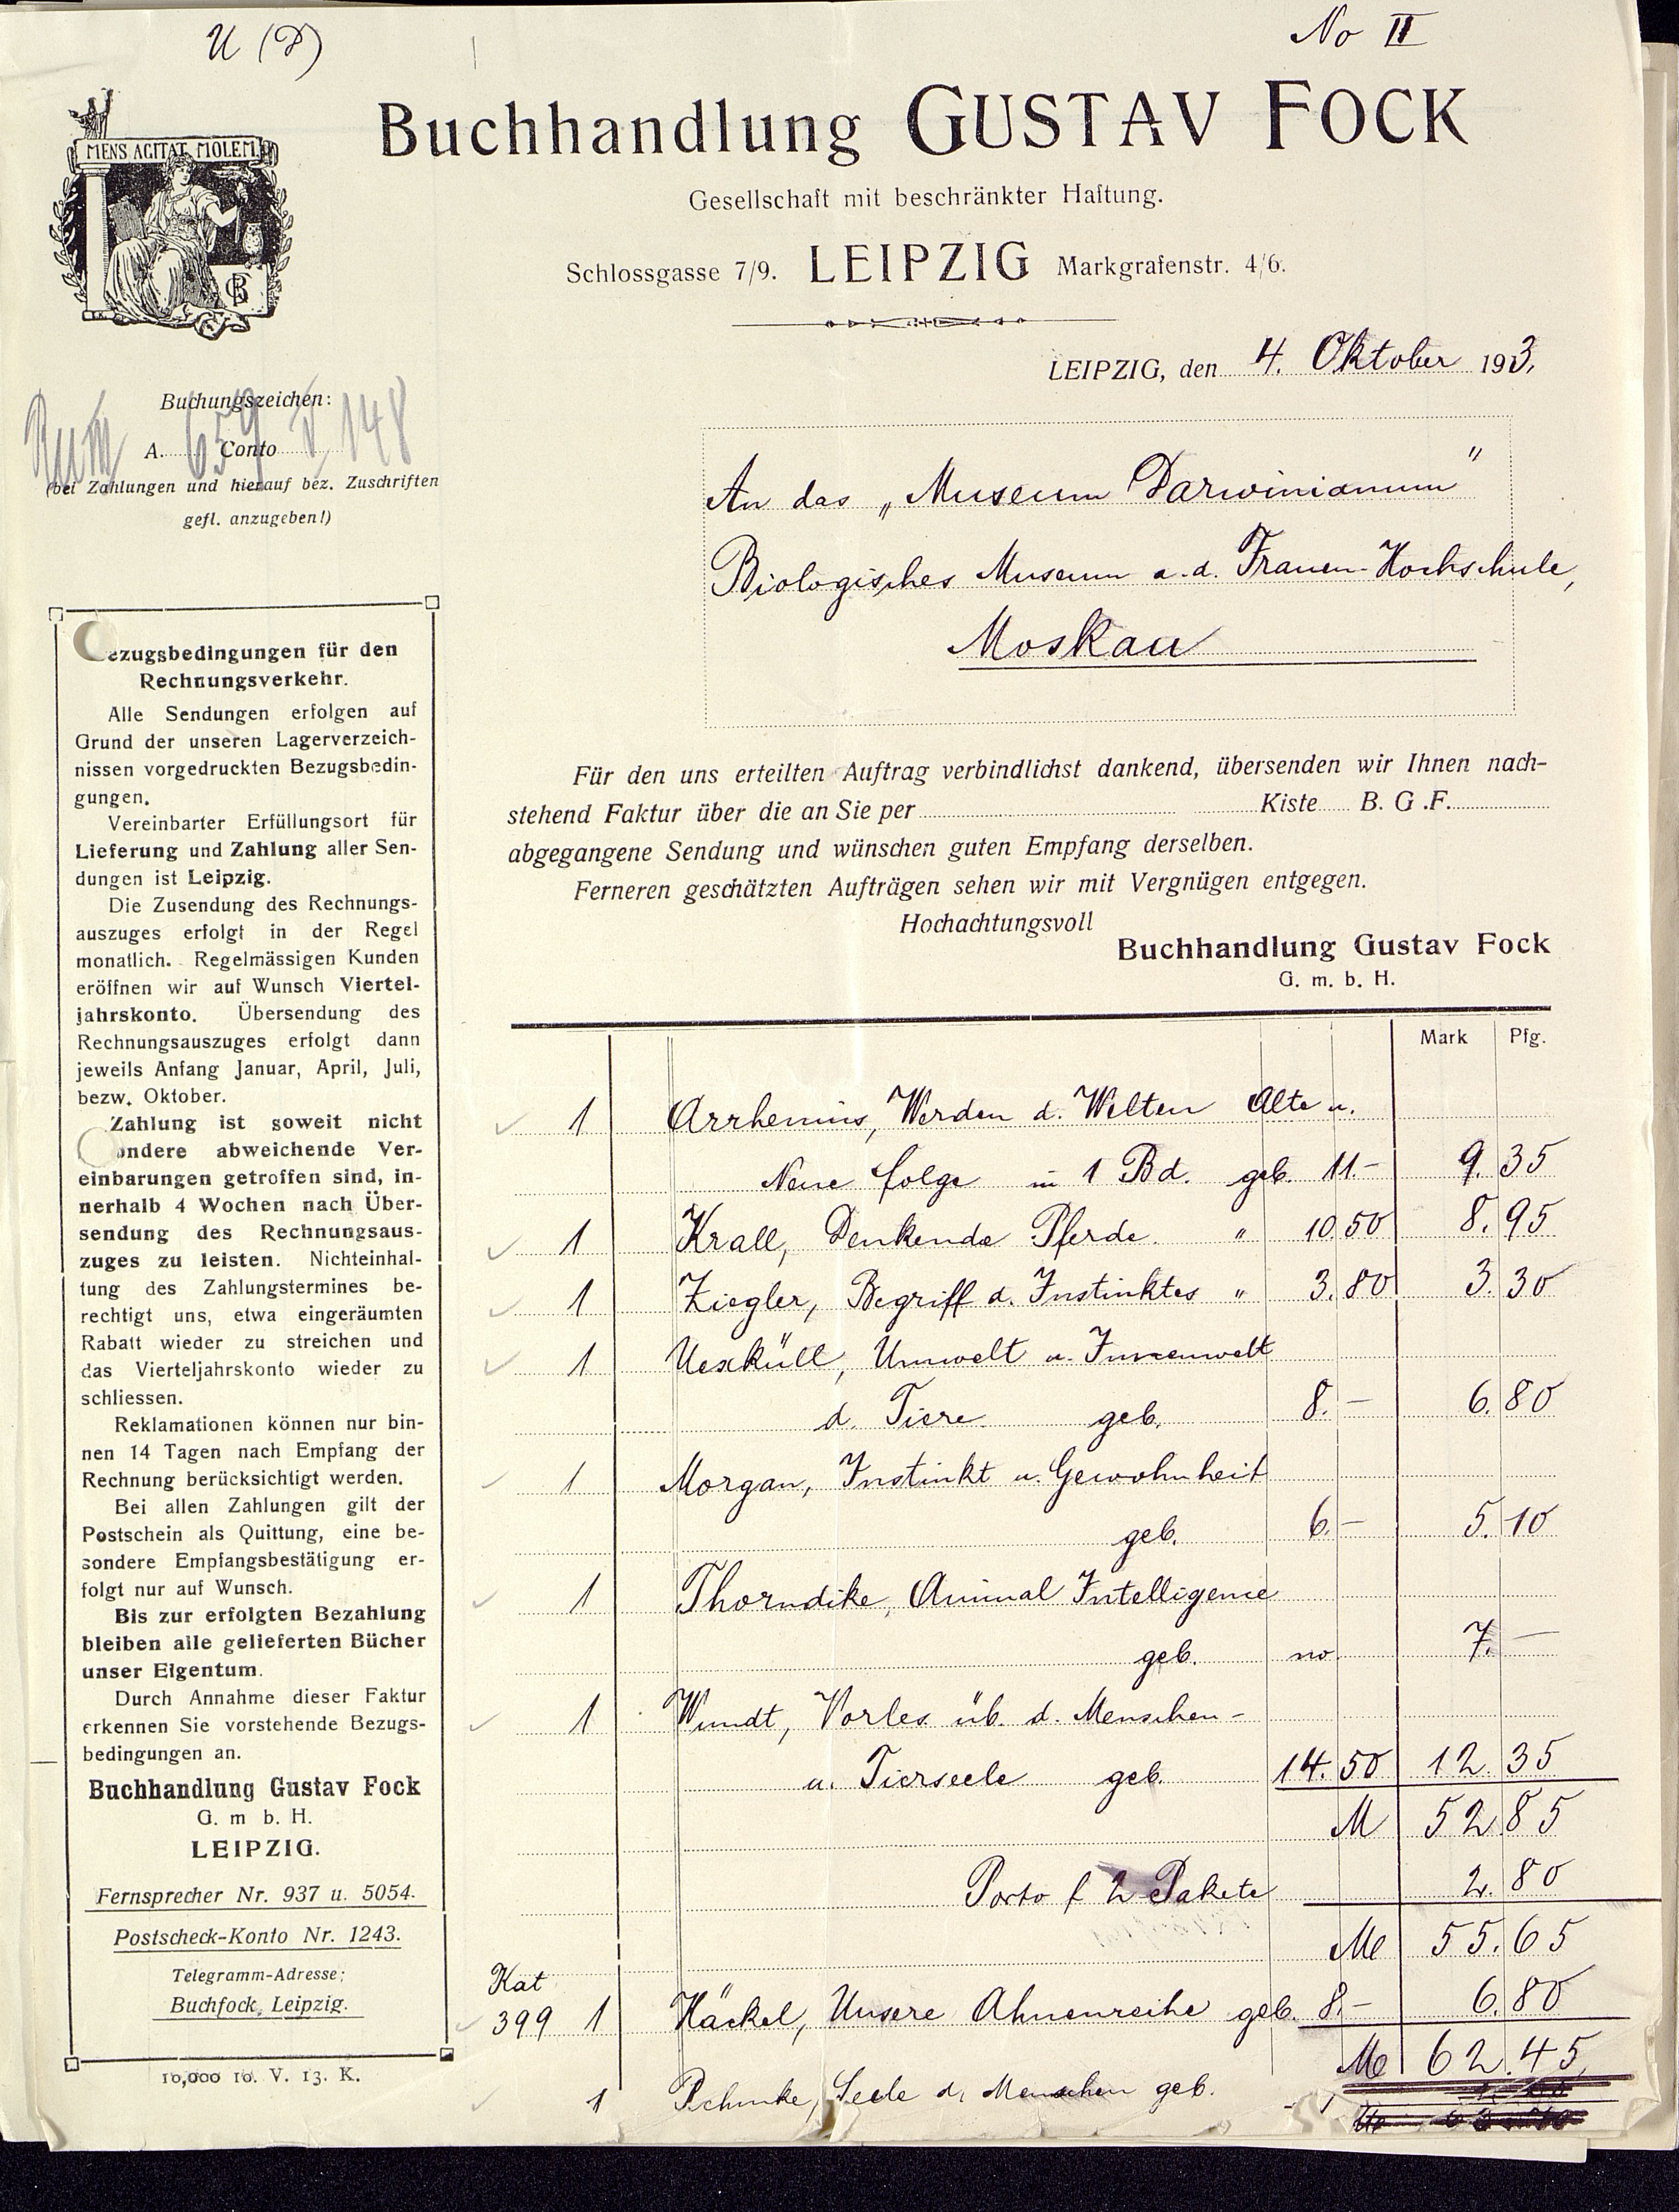 U (D)
No II
MENS AGITAT MOLEM
Buchhandlung GUSTAV FOCK
Gesellschaft mit beschränkter Haftung.
Schlossgasse 7/9. LEIPZIG Markgrafenstr. 4/6.
LEIPZIG, den 4. Oktober 1913.
Buchungszeichen:
A. 659 Conto 148
(bei Zahlungen und hierauf bez. Zuschriften
gefl. anzugeben!)
An das „Museum Darwinianum"
Biologisches Museum a. d. Frauen-Hochschule,
Moskau
Bezugsbedingungen für den
Rechnungsverkehr.
Alle Sendungen erfolgen auf
Grund der unseren Lagerverzeich-
nissen vorgedruckten Bezugsbedin-
gungen.
Vereinbarter Erfüllungsort für
Lieferung und Zahlung aller Sen-
dungen ist Leipzig.
Die Zusendung des Rechnungs-
auszuges erfolgt in der Regel
monatlich. Regelmässigen Kunden
eröffnen wir auf Wunsch Viertel-
jahrskonto. Übersendung des
Rechnungsauszuges erfolgt dann
jeweils Anfang Januar, April, Juli,
bezw. Oktober.
Zahlung ist soweit nicht
andere abweichende Ver-
einbarungen getroffen sind, in-
nerhalb 4 Wochen nach Über-
sendung des Rechnungsaus-
zuges zu leisten. Nichteinhal-
tung des Zahlungstermines be-
rechtigt uns, etwa eingeräumten
Rabatt wieder zu streichen und
das Vierteljahrskonto wieder zu
schliessen.
Reklamationen können nur bin-
nen 14 Tagen nach Empfang der
Rechnung berücksichtigt werden.
Bei allen Zahlungen gilt der
Postschein als Quittung, eine be-
sondere Empfangsbestätigung er-
folgt nur auf Wunsch.
Bis zur erfolgten Bezahlung
bleiben alle gelieferten Bücher
unser Eigentum.
Durch Annahme dieser Faktur
erkennen Sie vorstehende Bezugs-
bedingungen an.
Buchhandlung Gustav Fock
G. m b. H.
LEIPZIG.
Fernsprecher Nr. 937 u. 5054.
Postscheck-Konto Nr. 1243.
Telegramm-Adresse:
Buchfock, Leipzig.
10,000 10. V. 13. K.
Für den uns erteilten Auftrag verbindlichst dankend, übersenden wir Ihnen nach-
stehend Faktur über die an Sie per Kiste B. G .F.
abgegangene Sendung und wünschen guten Empfang derselben.
Ferneren geschätzten Aufträgen sehen wir mit Vergnügen entgegen.
Hochachtungsvoll
Buchhandlung Gustav Fock
G. m. b. H.
Mark Pfg.
1 Arrhenius, Werden d. Welten Alte u.
Neue folge in 1 Bd. geb. 11.- 9.35
1 Krall, Denkende Pferde. " 10.50 8.95
1 Ziegler, Begriff d. Instinktes " 3.80 3.30
1 Uexküll, Umwelt u. Innenwelt
d. Tiere geb. 8.- 6.80
1 Morgan, Instinkt u. Gewohnheit
geb. 6.- 5.10
1 Thorndike, Animal Intelligence
geb. no 7.-
1 Wundt, Vorles. üb. d. Menschen-
u. Tierseele geb. 14.50 12.35
M 52.85
Porto f 2 Pakete 2.80
M 55.65
Kat
399 1 Häckel, Unsere Ahnenreihe geb. 8.- 6.80
M 62.45
1 Seele d. Menschen geb.